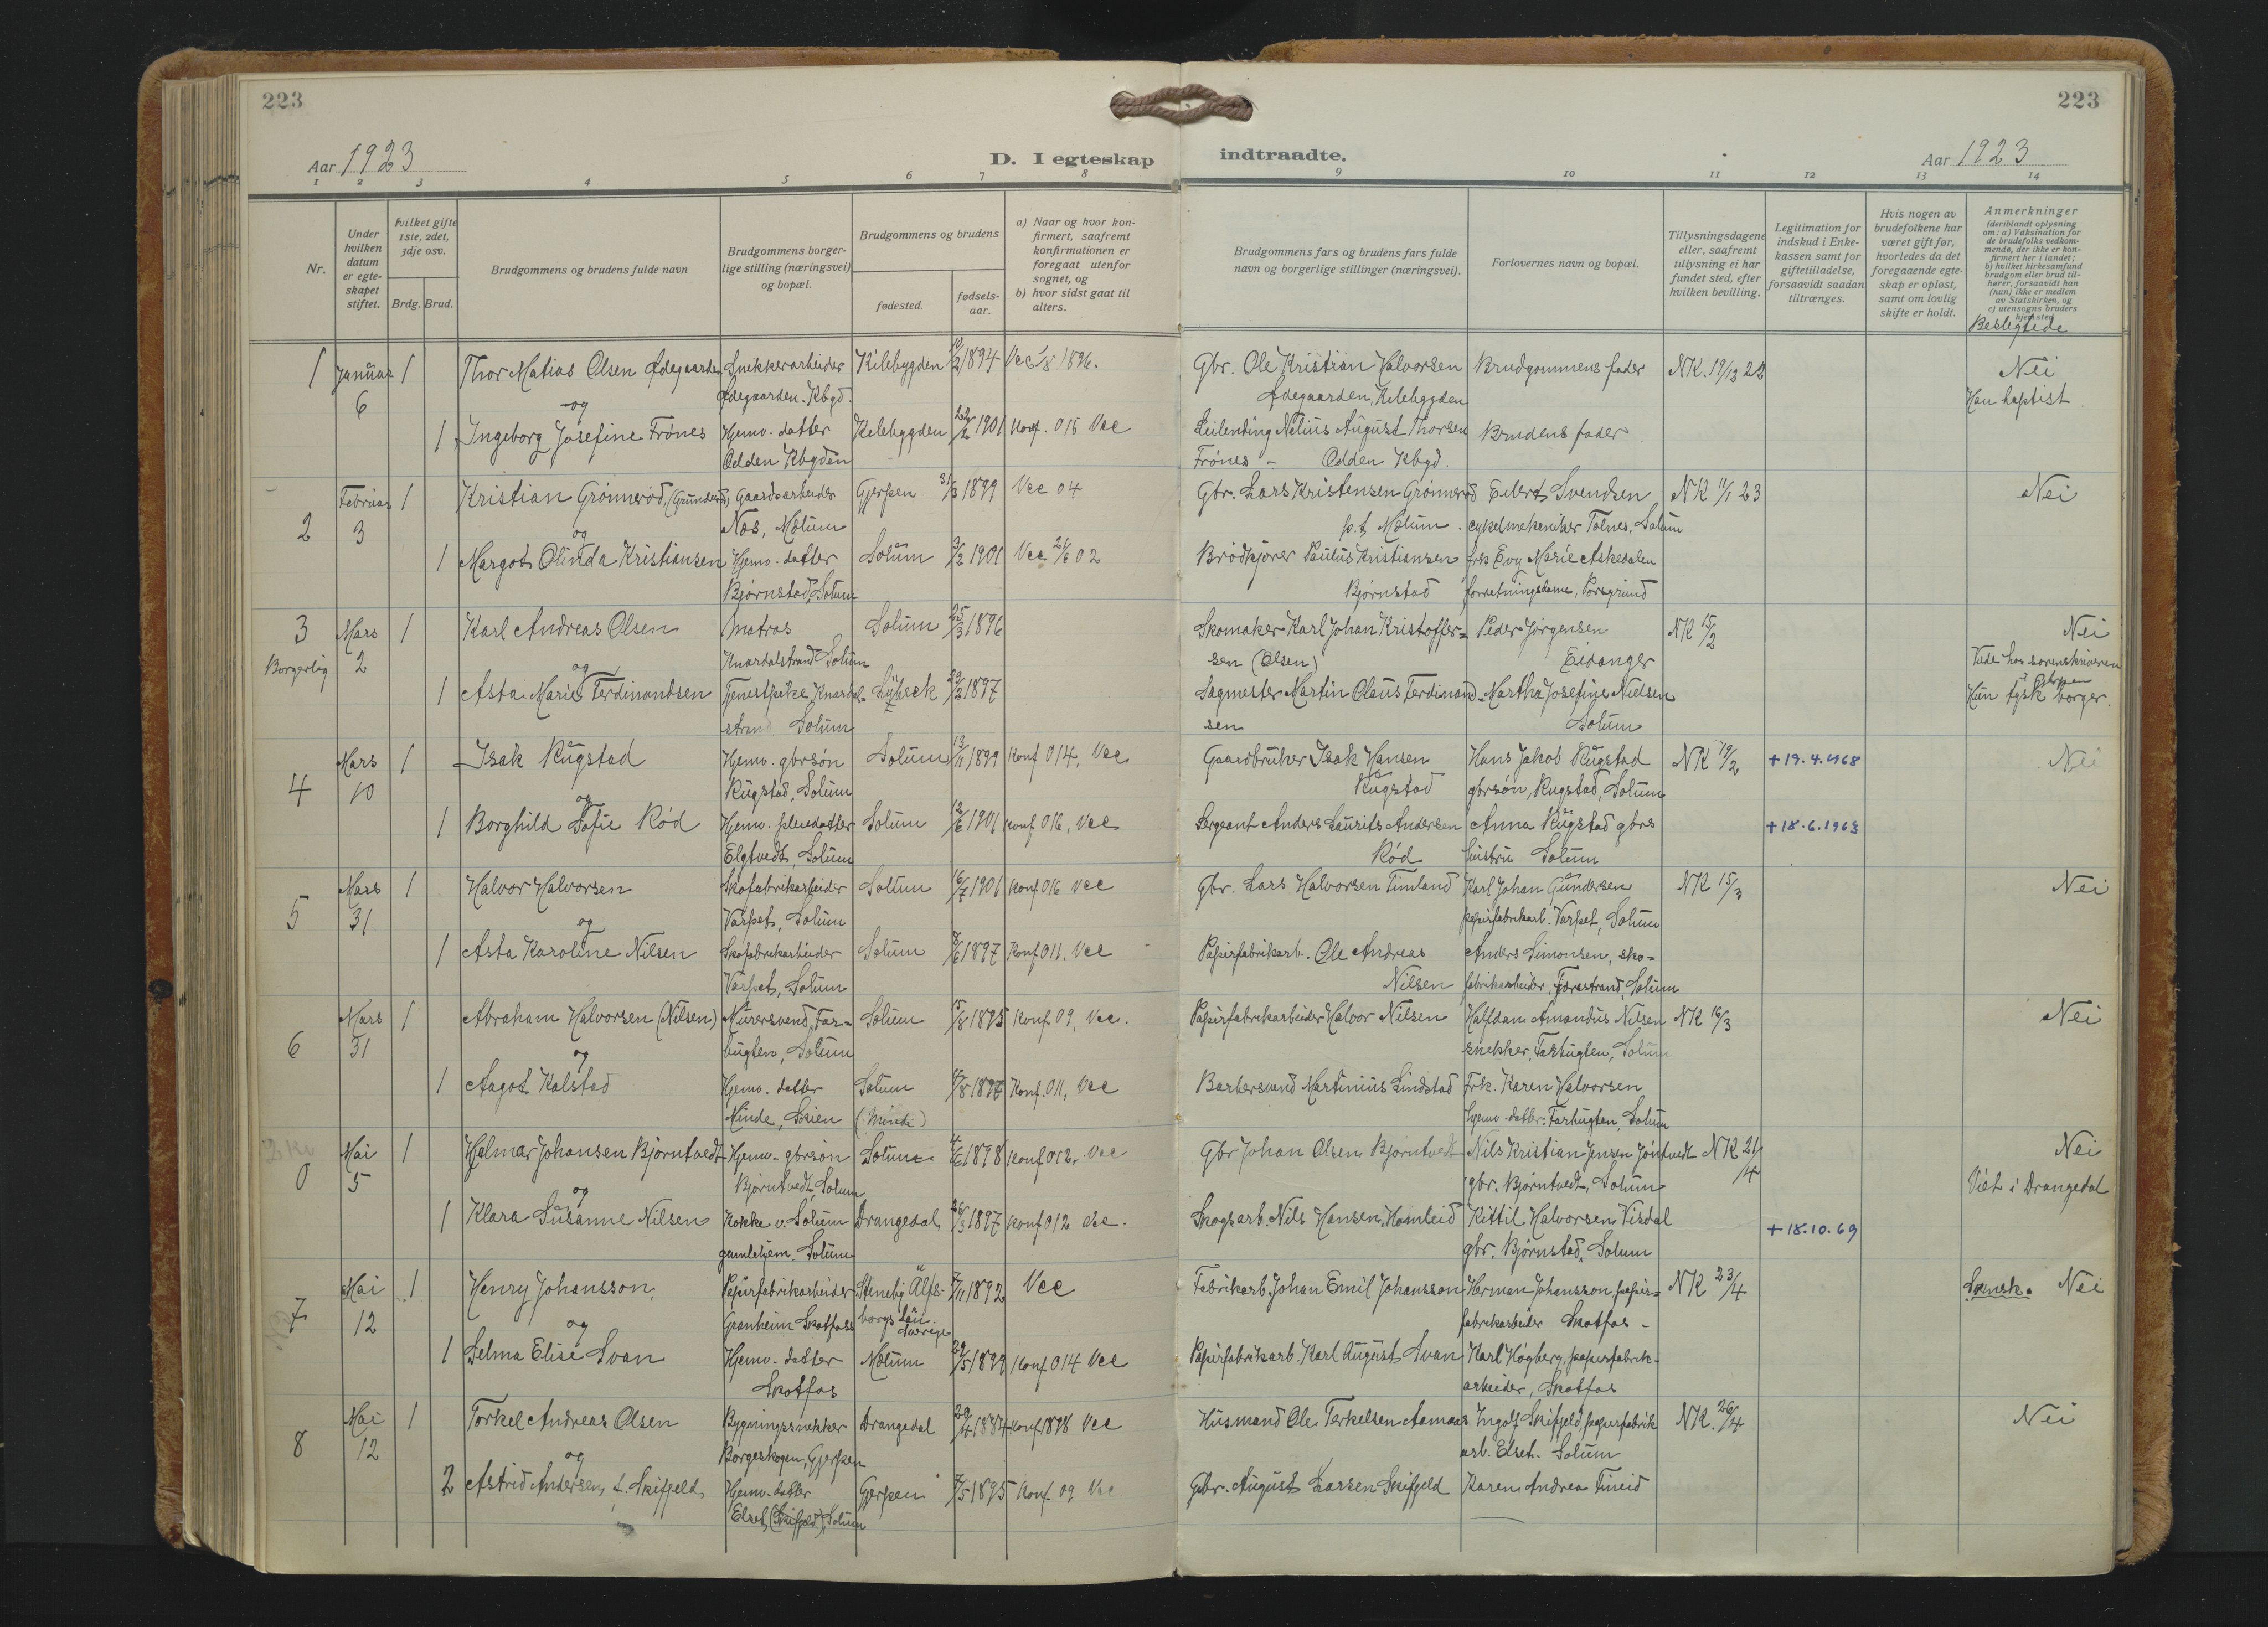 223
223
Aar 1923
D. I egteskap indtraadte.
Aar 1923
1 2 3 4 5 6 7 8 9 10 11 12 13 14
Nr.
Under hvilken datum er egteskapet stiftet.
hvilket gifte 1ste, 2det, 3dje osv.
Brdg. Brud.
Brudgommens og brudens fulde navn
Brudgommens borgerlige stilling (næringsvei) og bopæl.
Brudgommens og brudens
fødested.
fødselsaar.
a) Naar og hvor konfirmert, saafremt konfirmationen er foregaat utenfor sognet, og
b) hvor sidst gaat til alters.
Brudgommens fars og brudens fars fulde navn og borgerlige stillinger (næringsvei).
Forlovernes navn og bopæl.
Tillysningsdagene eller, saafremt tillysning ei har fundet sted, efter hvilken bevilling.
Legitimation for indskud i Enkekassen samt for giftetilladelse, forsaavidt saadan tiltrænges.
Hvis nogen av brudefolkene har været gift før, hvorledes da det foregaaende egteskap er opløst, samt om lovlig skifte er holdt.
Anmerkninger
(deriblandt oplysning om: a) Vaksination for de brudefolks vedkommende, der ikke er konfirmert her i landet;
b) hvilket kirkesamfund brudgom eller brud tilhører, forsaavidt han (hun) ikke er medlem av Statskirken, og
c) utensogns bruders hjemsted
Beslegtede
1 Januar 6 1 Thor Matias Olsen Ødegaarden Snekkerarbeider Ødegaarden. Kbgd. Kilebygden 1894 1896. Gbr. Ole Kristian Halvorsen Ødegaarden, Kilebygden Brudgommens fader NK. 19/13 22 Nei
Han baptist.
og
1 Ingeborg Josefine Frönes Hjemv. datter Odden Kbgden Kilebygden 22/2 1901 Konf. 015 Vee Leilending Nelius August Thorsen Frönes - Odden Kbgd. Brudens fader
2 Februar 3 1 Kristian Grönnerød, Gaardsarbeider Nes, Mælum Gjerpen 31/3 1899 Vee 04 Gbr. Lars Kristensen Grönnerød p.t. Mælum. Eilert Svendsen cykelmekaniker Tolnes. Solum NK 11/1 23 Nei
og
1 Margot Olinda Kristiansen Hjemv. datter Bjørnstad, Solum Solum 3/2 1901 Vee 02 Brødkjører Paulus Kristiansen Bjørnstad frk Evy Marie Askedalen forretningsdame, Porsgrund
3 Borgerlig Mars 2 1 Karl Andreas Olsen Matros Knardalstrand Solum Solum 25/3 1896 Skomaker Karl Johan Kristoffersen (Olsen) Peder Jørgensen Eidanger NK 15/2 Nei
Viede hos sorenskriveren i Gjerpen
Hun tysk borger.
og
1 Asta Marie Ferdinandsen Tjenestpike Knardalstrand Solum Lübeck 23/2 1897 Sagmester Martin Olaus Ferdinandsen Martha Josefine Nielsen Solum
4 Mars 10 1 Isak Rugstad Hjemv. gbrsøn Rugstad, Solum Solum 13/11 1899 Konf 014, Vee Gaardbruker Isak Hansen Rugstad Hans Jakob Rugstad gbrsøn, Rugstad, Solum NK 19/2 + 19.4.1968 Nei
og
1 Borghild Sofie Rød Hjemv. pleiedatter Elgtvedt, Solum Solum 12/6 1901 Konf 016, Vee Sergeant Anders Laurits Andersen Rød Anna Rugstad gbrs hustru Solum + 18.6.1963
5 Mars 31 1 Halvor Halvorsen Skofabrikarbeider Varpet, Solum Solum 16/7 1901 Konf 016 Vee Gbr. Lars Halvorsen Timland Karl Johan Gundersen papirfabrikarb. Varpet, Solum NK 15/3 Nei
og
1 Asta Karoline Nilsen Skofabrikarbeider Varpet, Solum Solum 1897 Konf 011, Vee Papirfabrikarb. Ole Andreas Nilsen Anders Simonsen, skofabrikarbeider, Solum
6 Mars 31 1 Abraham Halvorsen (Nilsen) Murersvend, Farbugten, Solum Solum 1895 Konf 09, Vee. Papirfabrikarbeider Halvor Nilsen Halfdan Amandus Nilsen snekker, Farbugten, Solum NK 16/3 Nei
og
1 Aagot Kalstad Hjemv. datter Minde, Skien Solum (Minde) Konf. 011, Vee Barbersvend Martinius Lindstad Frk. Karen Halvorsen hjemv. datter. Farbugten, Solum
0 Mai 5 1 Hjelmar Johansen Bjørntvedt Hjemv. gbrsøn Bjørntvedt, Solum Solum 1898 Konf 012, Vee Gbr Johan Olsen Bjørntvedt Nils Kristian Jensen Jöntvedt gbr. Bjørntvedt, Solum NK 21/4 Nei
Viet i Drangedal
og
1 Klara Susanne Nilsen Kokke v. Solum gamlehjem. Solum Drangedal 26/3 1897 Konf 012 Vee. Skogsarb. Nils Hansen, Homleid Kittil Halvorsen Visdal gbr. Bjørnstad, Solum + 18.10.69
7 Mai 12 1 Henry Johansson, Papirfabrikarbeider Granheim Skotfoss Steneby Älfsborgs län. Sverige 1892 Vee Fabrikarb. Johan Emil Johansson Herman Johansson papirfabrikarbeider Skotfos - NK 23/4 Svensk. Nei
og
1 Selma Elise Svan Hjemv. datter Skotfos Mælum 29/5 1899 Konf 014 Vee Papirfabrikarb. Karl August Svan Karl Høgberg, papirfabrikarbeider, Skotfos
8 Mai 12 1 Torkel Andreas Olsen Bygningssnekker Borgeskogen, Gjerpen Drangedal 29/4 1884 Konf 1898 Vee Husmand Ole Terkelsen Aamaas Ingolf Skifjeld, papirfabrikarb. Elset. Solum NK. 26/4 Nei
og
2 Astrid Andersen f. Skifjeld Hjemv. datter Elset, (Skifjeld), Solum Gjerpen 1895 Konf. 09 Vee Gbr. August Larsen Skifjeld Karen Andrea Fineid